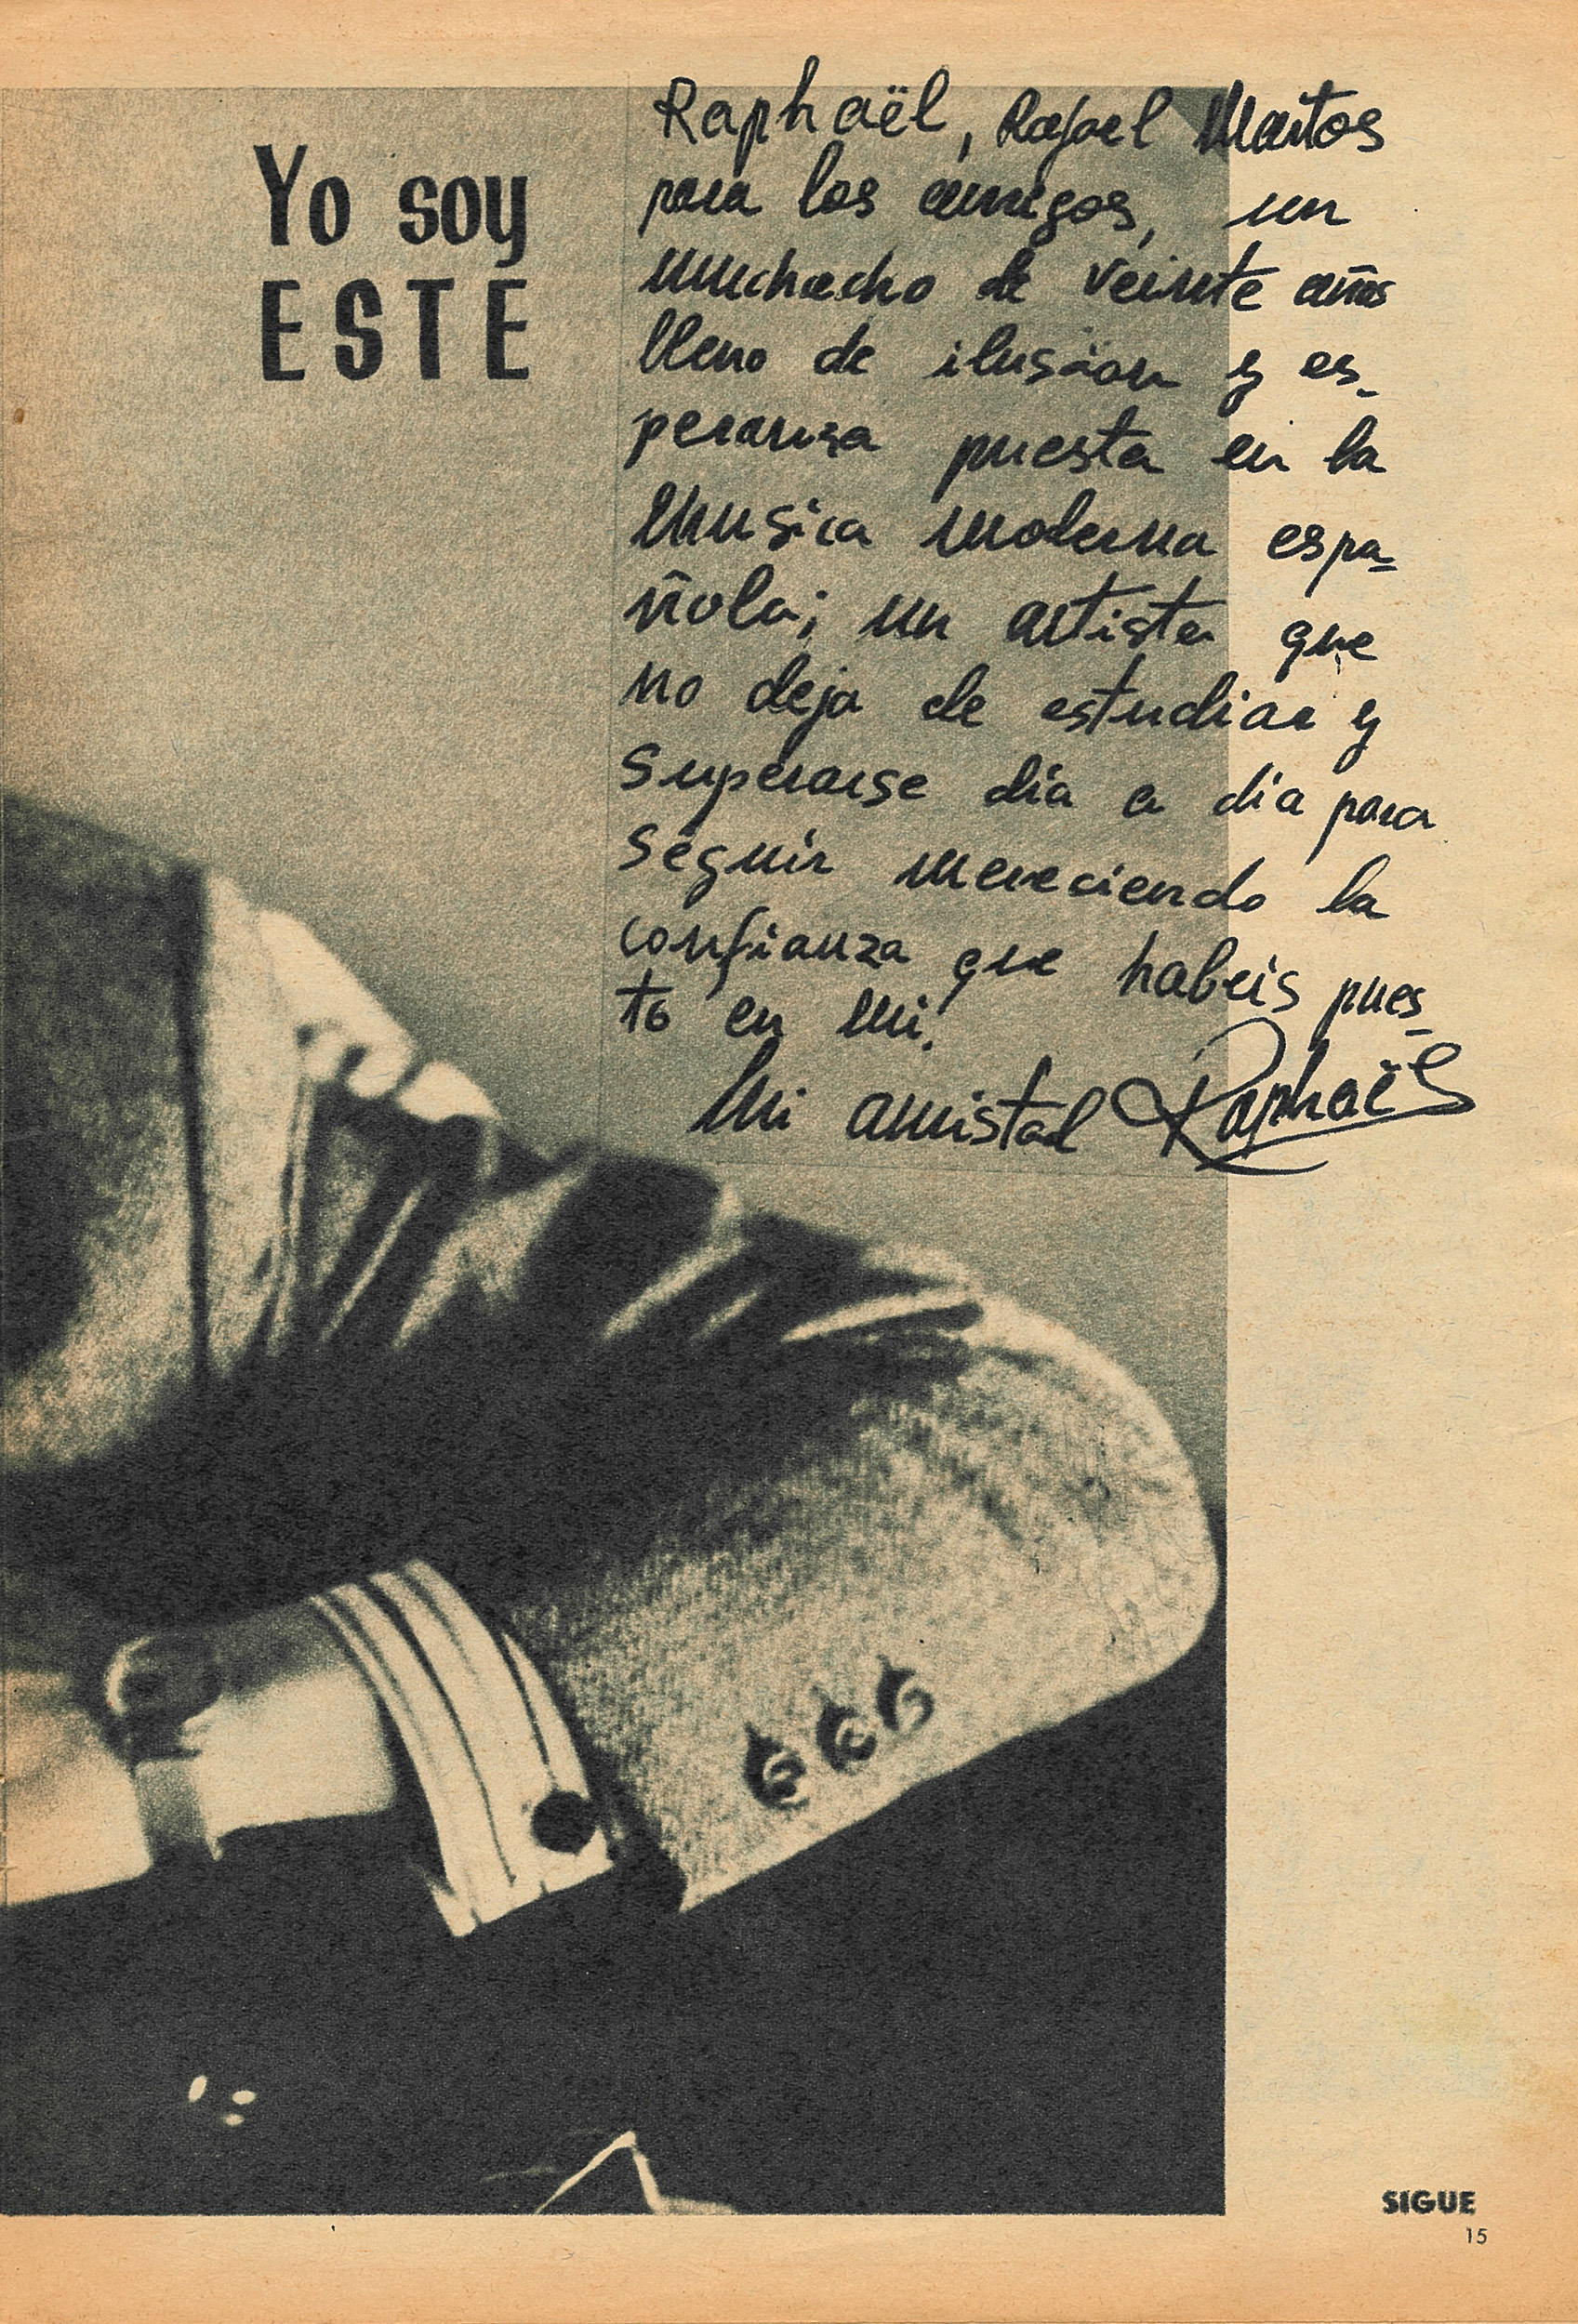 Yo soy
ESTE
Raphaël, Rafael Martos
para los amigos, un
muchacho de veinte años
lleno de ilusión y es-
peranza puesta en la
musica moderna espa-
ñola; un artista que
no deja de estudiar y
superarse día a día para
seguir mereciendo la
confianza que habeis pues-
to en mi.
Mi amistad Raphaël
SIGUE
15